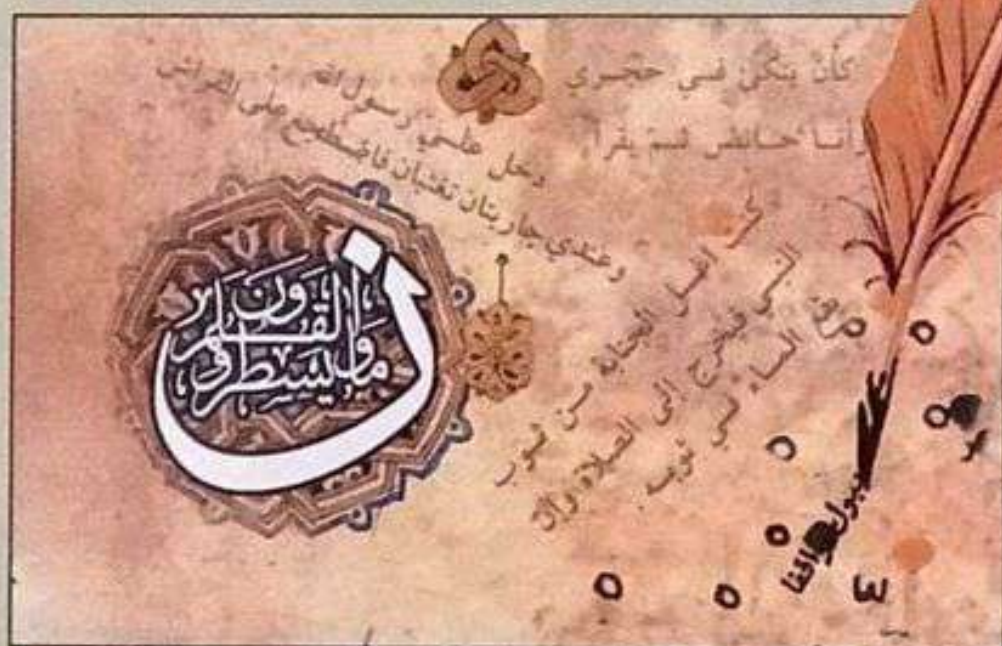 كان يتكئ في حجري
وأنا حائض ثم يقرأ
دخل علي رسول الله
وعندي جاريتان تغنيان فاضطجع على الفراش
ن والقلم وما يسطرون
اغسل الجنابة من ثوب
النبي فيخرج إلى الصلاة وإن
بقع الماء في ثوبه
يبول واقفا